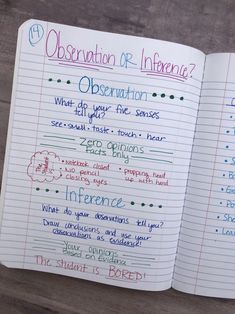 14
Observation OR Inference?
Observation
What do your five senses
tell you?
see • smell • taste • touch • hear
Zero opinions
Facts only
• notebook closed
• no pencil
• closing eyes
• propping head
up with hand
Inference
What do your observations tell you?
Draw conclusions and use your
observations as evidence!
Your opinions
based on evidence
The student is BORED!